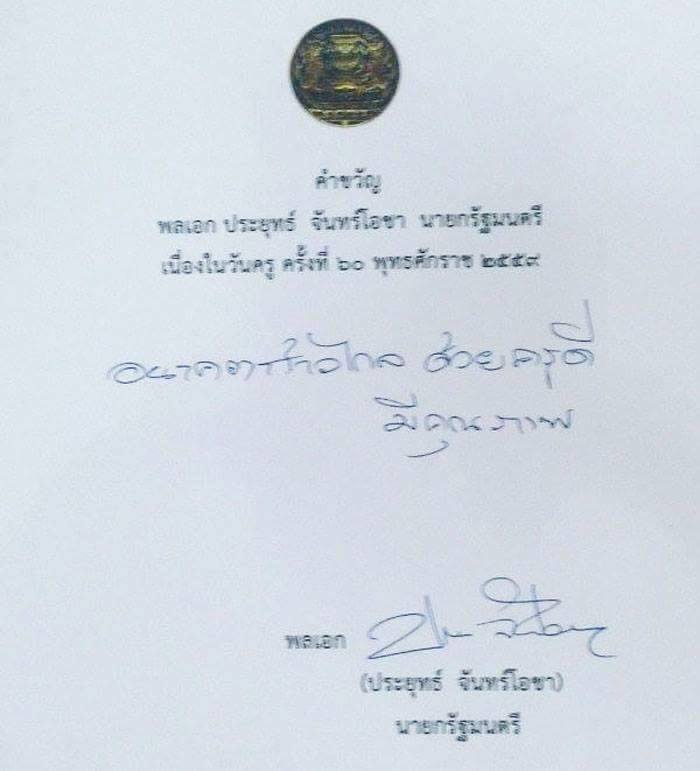 คำขวัญ
พลเอก ประยุทธ์ จันทร์โอชา นายกรัฐมนตรี
เนื่องในวันครู ครั้งที่ ๖๐ พุทธศักราช ๒๕๕๙
อนาคตก้าวไกล ด้วยครูดี
มีคุณภาพ
พลเอก
(ประยุทธ์ จันทร์โอชา)
นายกรัฐมนตรี